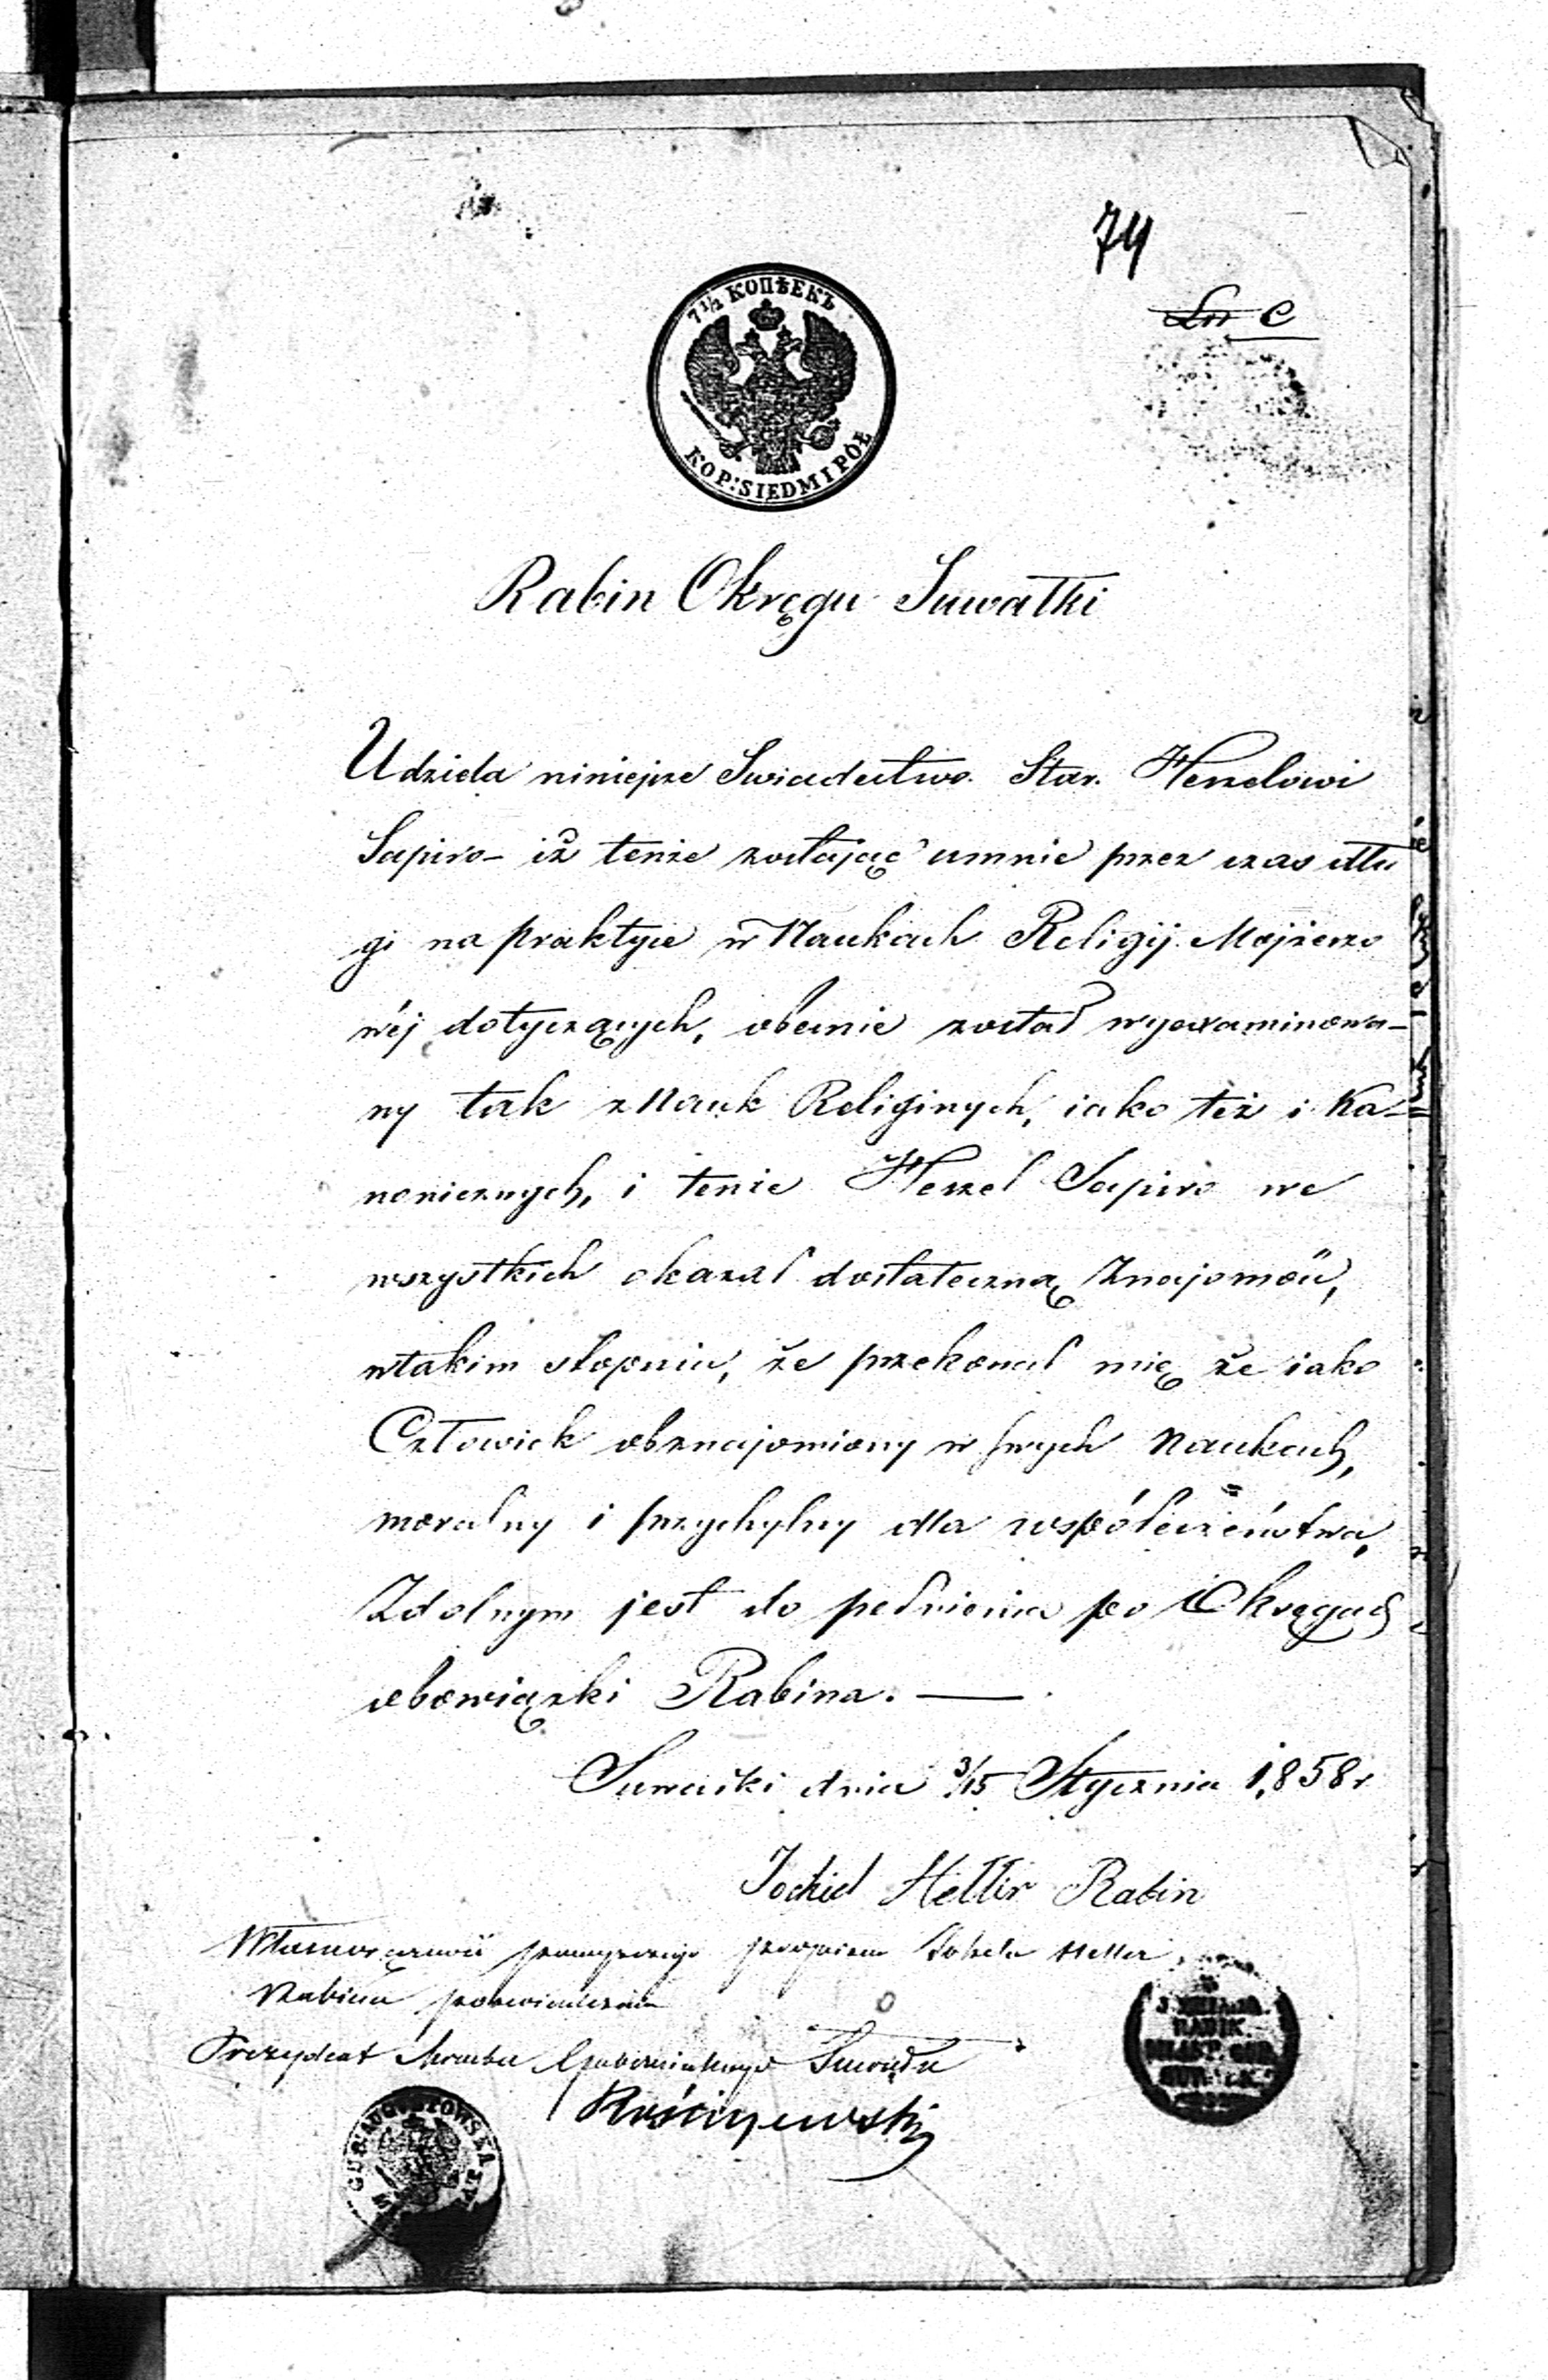 74
Lit C
7½ КОПѢЕКЪ
KOP: SIEDM I PÓŁ
Rabin Okręgu Suwałki
Udziela niniejsze Swiadectwo Star. Herszelowi
Sapiro – iż tenże zostając umnie przez czas dłu
gi na praktyce w Naukach Religij Mojżeszo
wéj dotyczących, obecnie został wyexaminowa–
ny tak z Nauk Religinych, iako też i Ka=
nonicznych, i tenże Herszel Sapiro we
wszystkich okazał dostateczną Znajomość,
wtakim stopniu, że przekonał mię że iako
Człowiek obznajomiony w swych Naukach,
moralny i przychylny dla współeczeństwa,
Zdolnym jest do pełnienia po Okręgach
obowiązki Rabina. —
Suwałki dnia 3/15 Stycznia 1858 r
Jochiel Heller Rabin
Własnoręczność powyższego podpisu Heller
Rabina poswiadczam
Prezydent Miasta Gubernialnego Suwałk
GUB: AUGUSTOWSKA